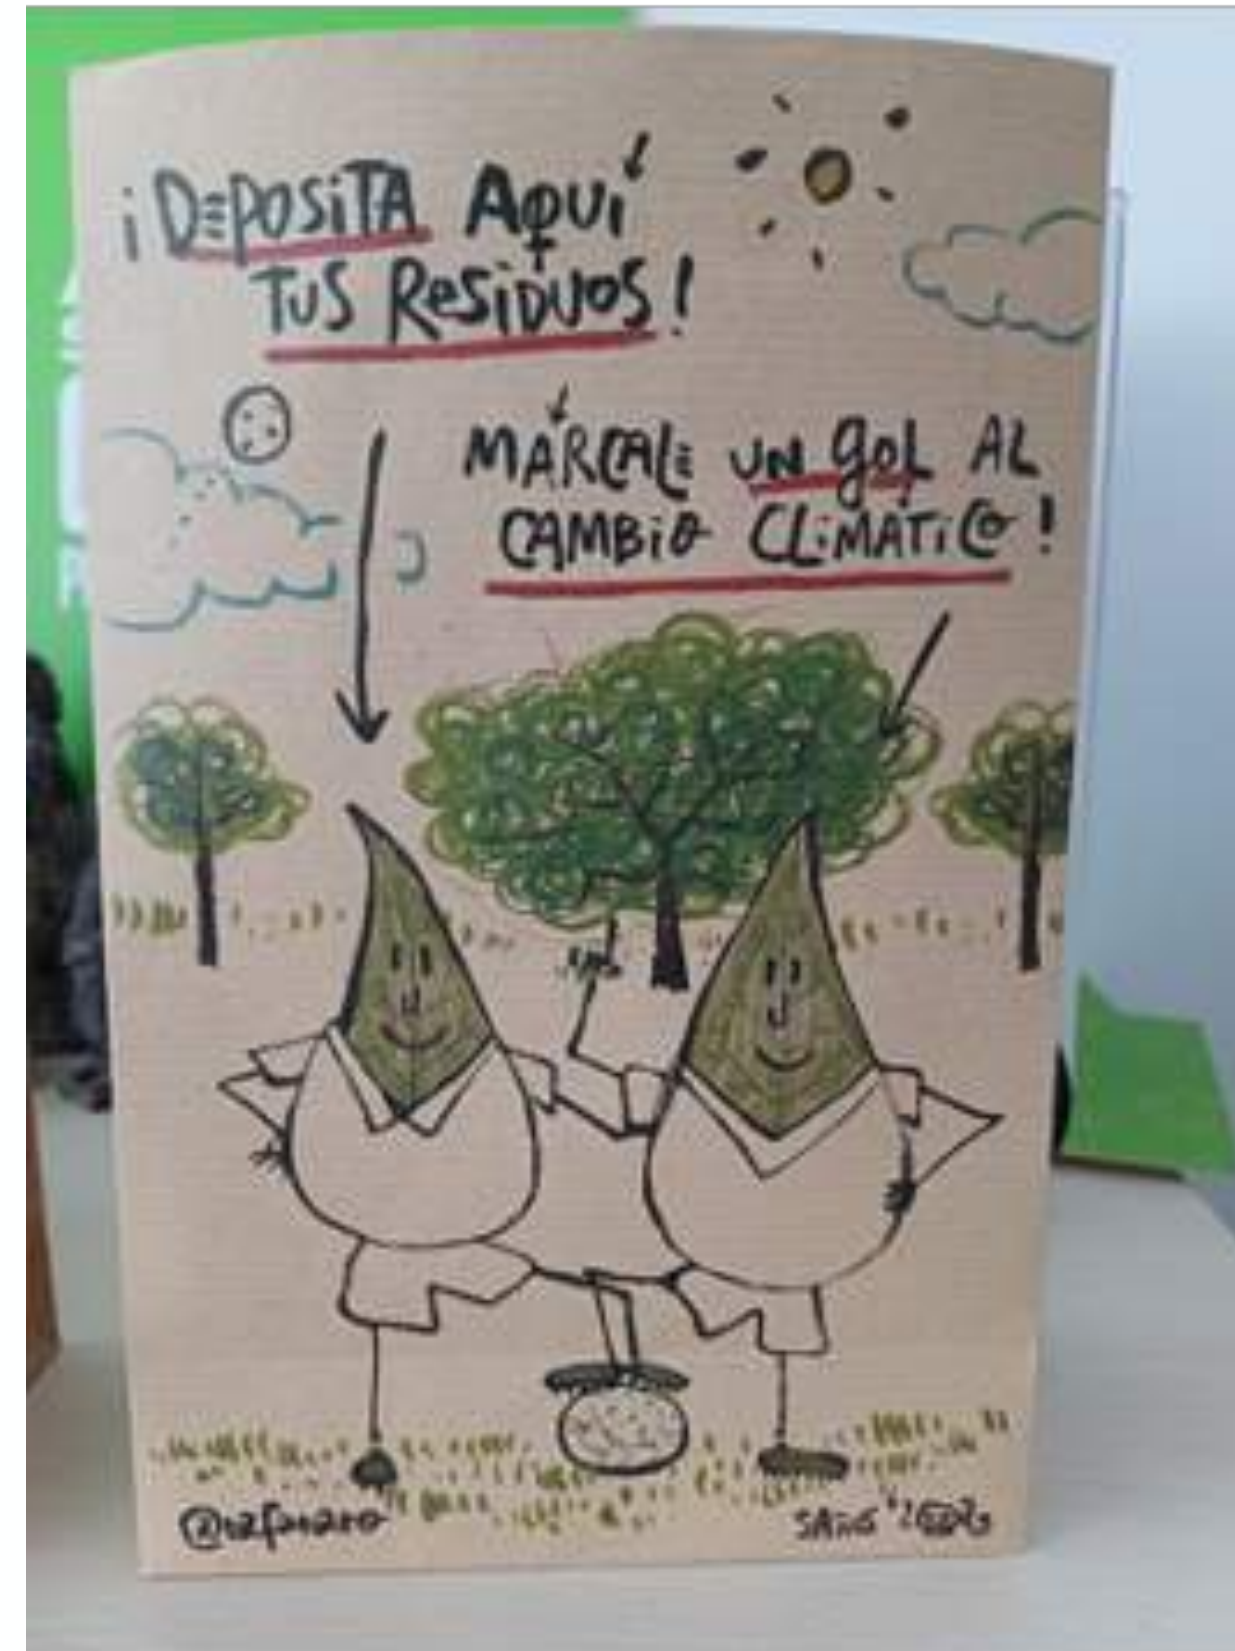 ¡DEPOSiTA AQUÍ
TUS ReSiDUOS!
MÁRCALE UN gOL AL
CAMBiO CLiMÁTiCO!